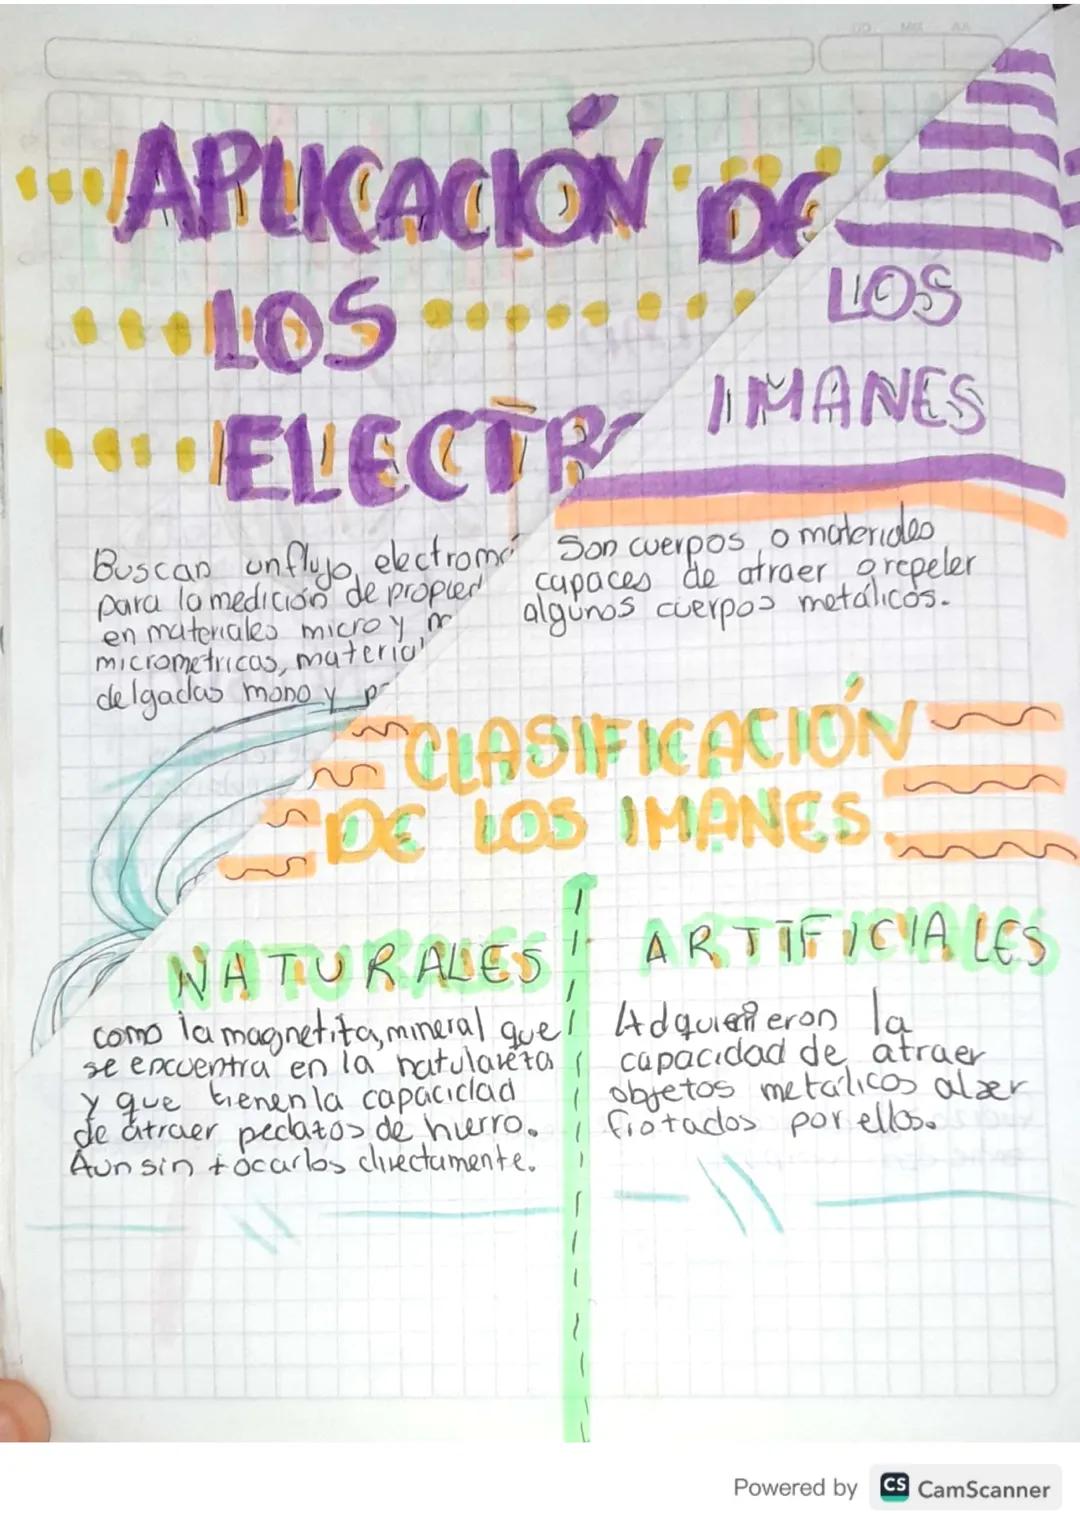 APLICACIÓN DE
LOS
Buscan un flujo electrom
para la medición de propied
en materiales micro y
micrometricas, material
delgadas mono y
LOS
IMANES
Son cuerpos o materiales
capaces de atraer o repeler
algunos cuerpos metálicos.
CLASIFICACIÓN
DE LOS IMANES.
NATURALES
como la magnetita, mineral que
se encuentra en la
y que tienen la capacidad
de atraer pedazos de hierro.
Aun sin tocarlos directamente.
ARTIFICIALES
la
capacidad de atraer
objetos metálicos al ser
frotados por ellos.
Powered by CS CamScanner